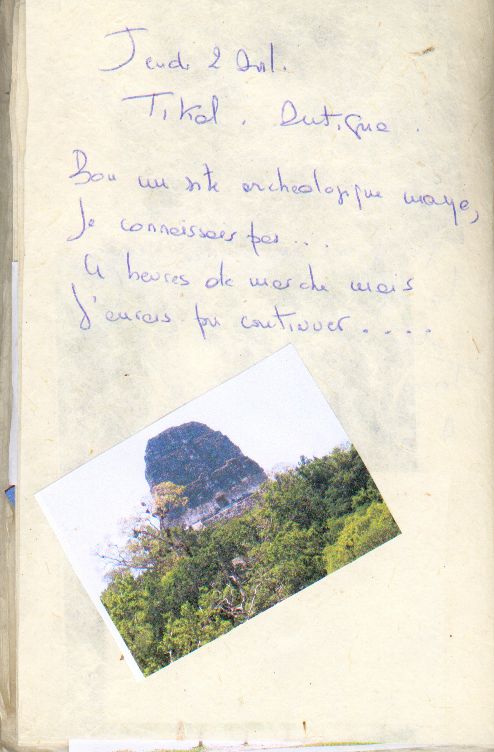 Jeudi 2 Avril.
Tikal. Antigua.
Bon un site archeologique maya,
Je connaissais pas...
4 heures de marche mais
J'aurais pu continuer....